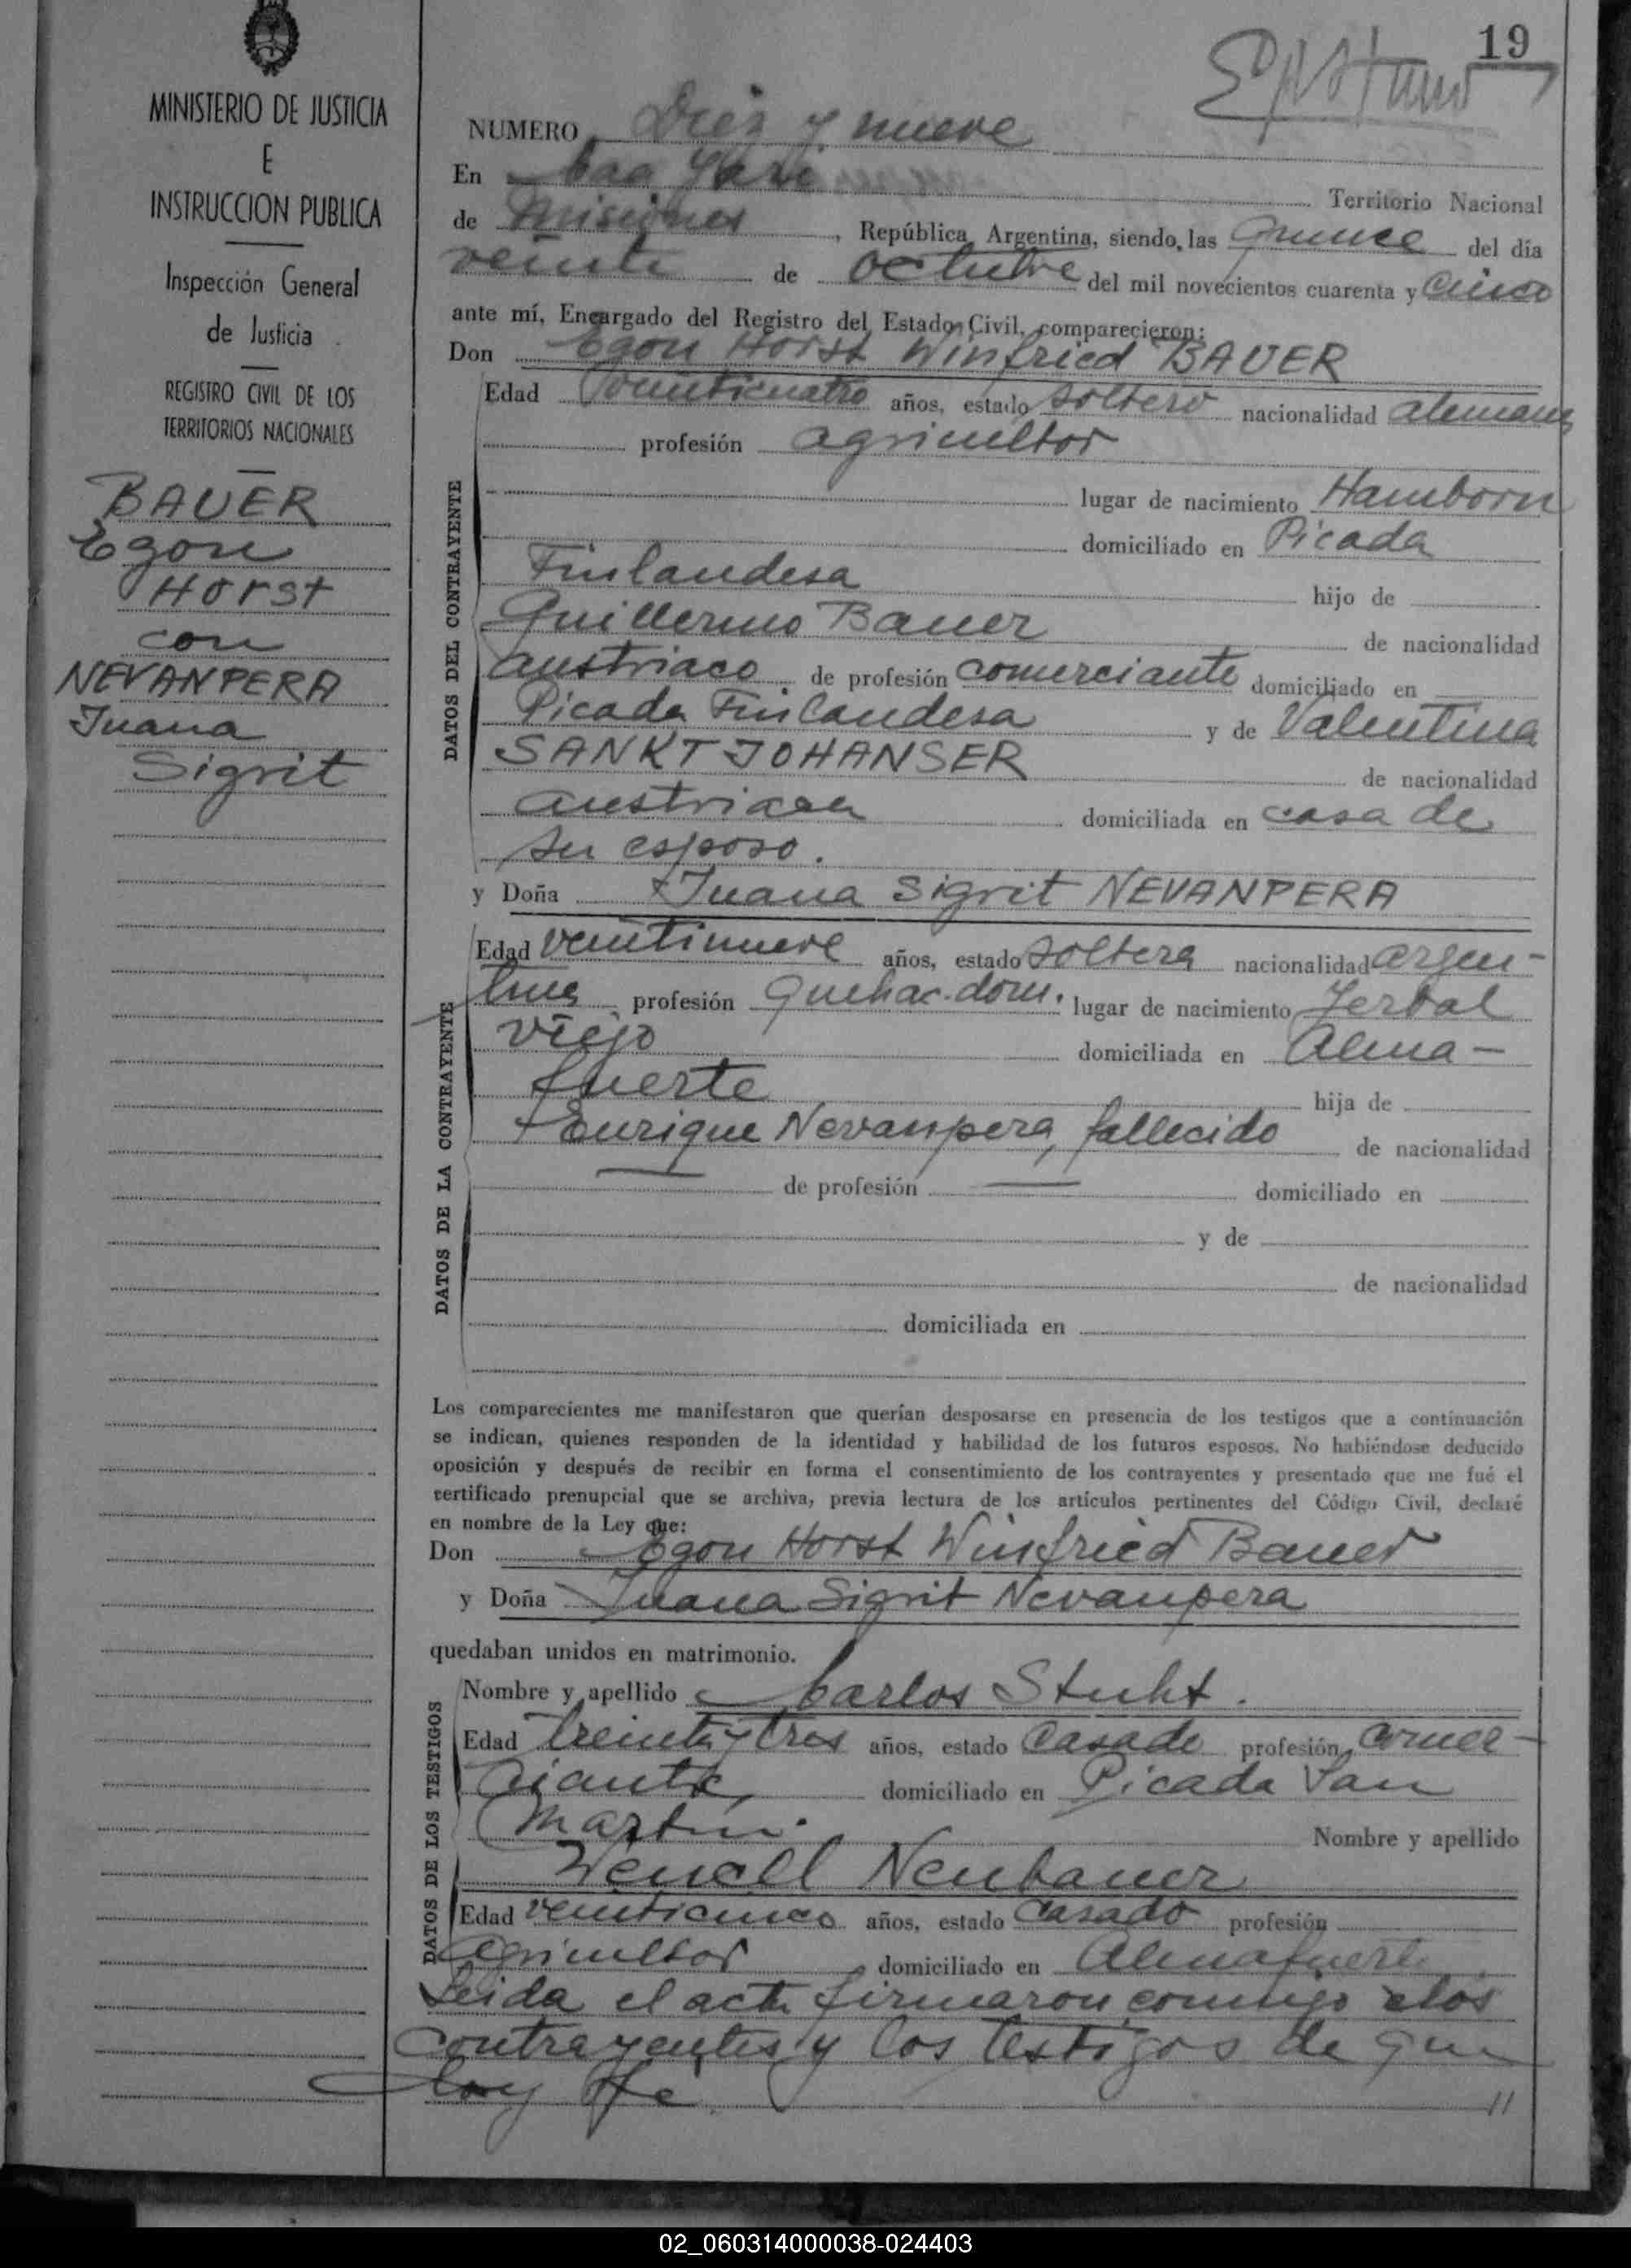 19
MINISTERIO DE JUSTICIA
E
INSTRUCCION PUBLICA
Inspección General
de Justicia
REGISTRO CIVIL DE LOS
TERRITORIOS NACIONALES
BAUER
Egon
Horst
con
NEVANPERA
Juana
Sigrit
NUMERO Diez y nueve
En Caa Yari Territorio Nacional
de Misiones, República Argentina, siendo las quince del día
veinte de octubre del mil novecientos cuarenta y cinco
ante mí, Encargado del Registro del Estado Civil, comparecieron:
Don Egon Horst Winfried BAUER
DATOS DEL CONTRAYENTE
Edad veinticuatro años, estado soltero nacionalidad alemana
profesión agricultor
lugar de nacimiento Hamborn
domiciliado en Picada
Finlandesa hijo de
Guillermo Bauer de nacionalidad
austriaco de profesión comerciante domiciliado en
Picada Finlandesa y de Valentina
SANKT JOHANSER de nacionalidad
austriaca domiciliada en casa de
su esposo.
y Doña Juana Sigrit NEVANPERA
DATOS DE LA CONTRAYENTE
Edad veintinueve años, estado soltera nacionalidad argen-
tina profesión quehac. dom. lugar de nacimiento Yerbal
viejo domiciliada en Alma-
fuerte hija de
Enrique Nevanpera, fallecido de nacionalidad
— de profesión — domiciliado en
y de
de nacionalidad
domiciliada en
Los comparecientes me manifestaron que querían desposarse en presencia de los testigos que a continuación
se indican, quienes responden de la identidad y habilidad de los futuros esposos. No habiéndose deducido
oposición y después de recibir en forma el consentimiento de los contrayentes y presentado que me fué el
certificado prenupcial que se archiva, previa lectura de los artículos pertinentes del Código Civil, declaré
en nombre de la Ley que:
Don Egon Horst Winfried Bauer
y Doña Juana Sigrit Nevanpera
quedaban unidos en matrimonio.
DATOS DE LOS TESTIGOS
Nombre y apellido Carlos Stuht.
Edad treinta y tres años, estado casado profesión comer-
ciante domiciliado en Picada San
Martin. Nombre y apellido
Neubauer
Edad veinticinco años, estado casado profesión
agricultor domiciliado en Almafuerte
Leida el acta firmaron conmigo los
contrayentes y los testigos de que
doy fe
02_060314000038-024403